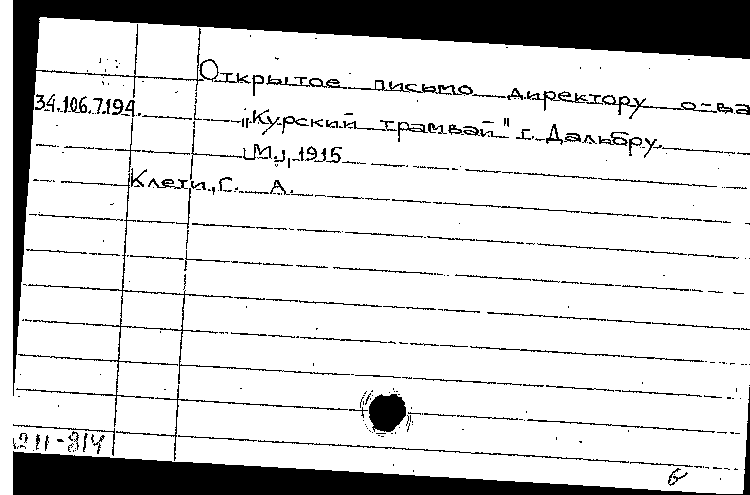 Открытое письмо директору о-ва
34.106.7.194.
„Курский трамвай" г. Дальбру.
М., 1915
Клети, Г. А.
211-814
б